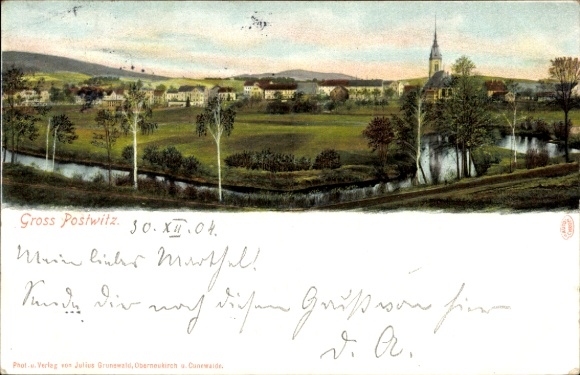 Gross Postwitz.
30. XII. 04.
Mein liebes Marthel!
Sende Dir noch diesen Gruß von hier
D. A.
Phot. u. Verlag von Julius Grunewald, Oberneukirch u. Cunewalde.